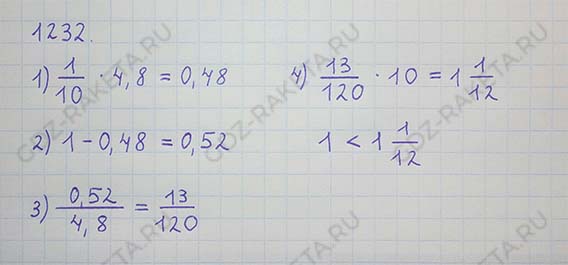 1232.
1) 1/10 · 4,8 = 0,48
2) 1 - 0,48 = 0,52
3) 0,52/4,8 = 13/120
4) 13/120 · 10 = 1 1/12
1 < 1 1/12
GDZ-RAKETA.RU
GDZ-RAKETA.RU
GDZ-RAKETA.RU
GDZ-RAKETA.RU
GDZ-RAKETA.RU